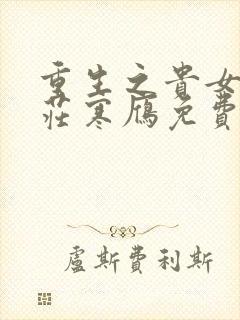 重生之貴女
莊寒雁免費
盧斯費利斯